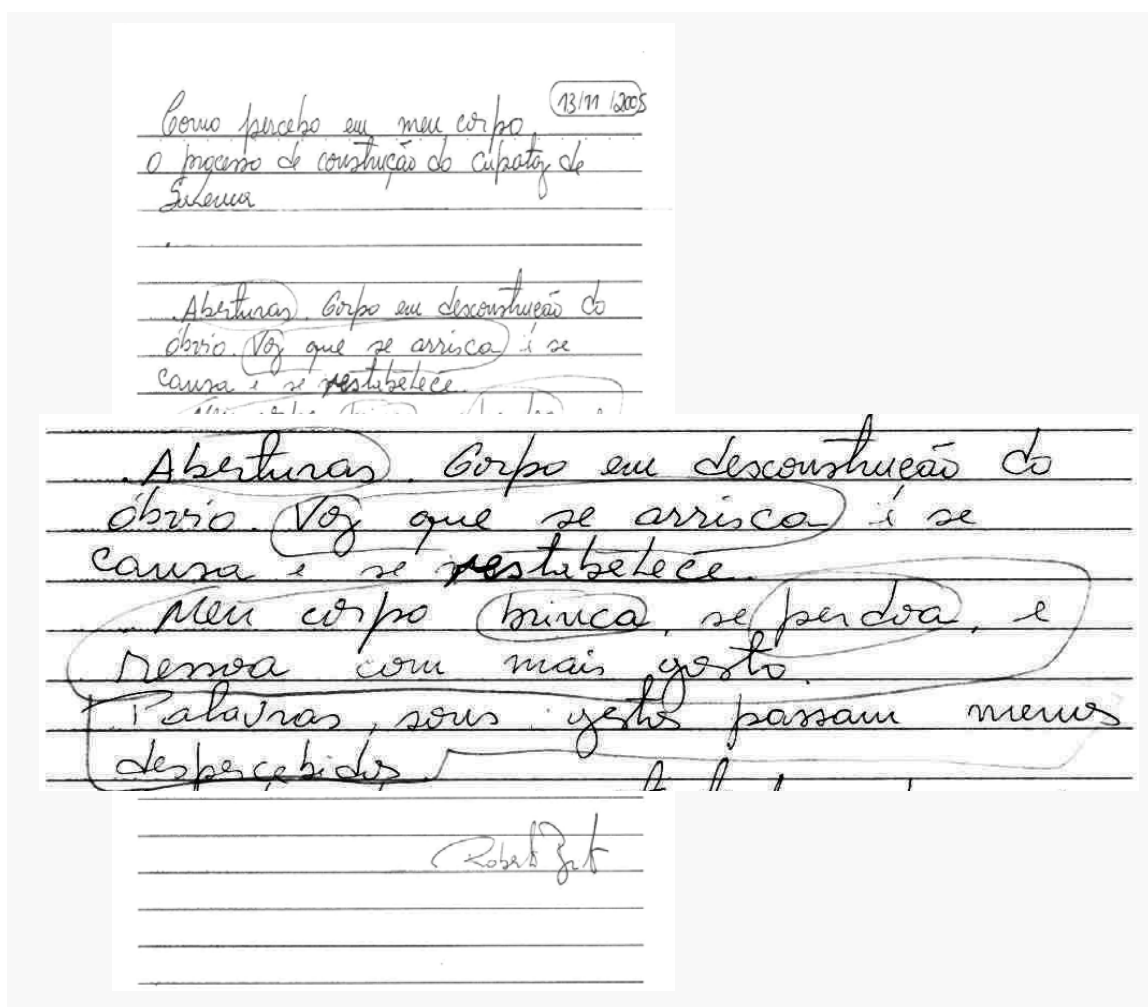 13/11/2005
Como percebo em meu corpo,
o processo de construção do Capataz de
Salema
.Aberturas. Corpo em desconstrução do
óbvio. Voz que se arrisca e se
causa e se restabelece.
.Aberturas. Corpo em desconstrução do
óbvio. Voz que se arrisca e se
causa e se restabelece.
Meu corpo brinca, se perdoa, e
ressoa com mais gosto.
Palavras, sons gestos passam menos
despercebidos